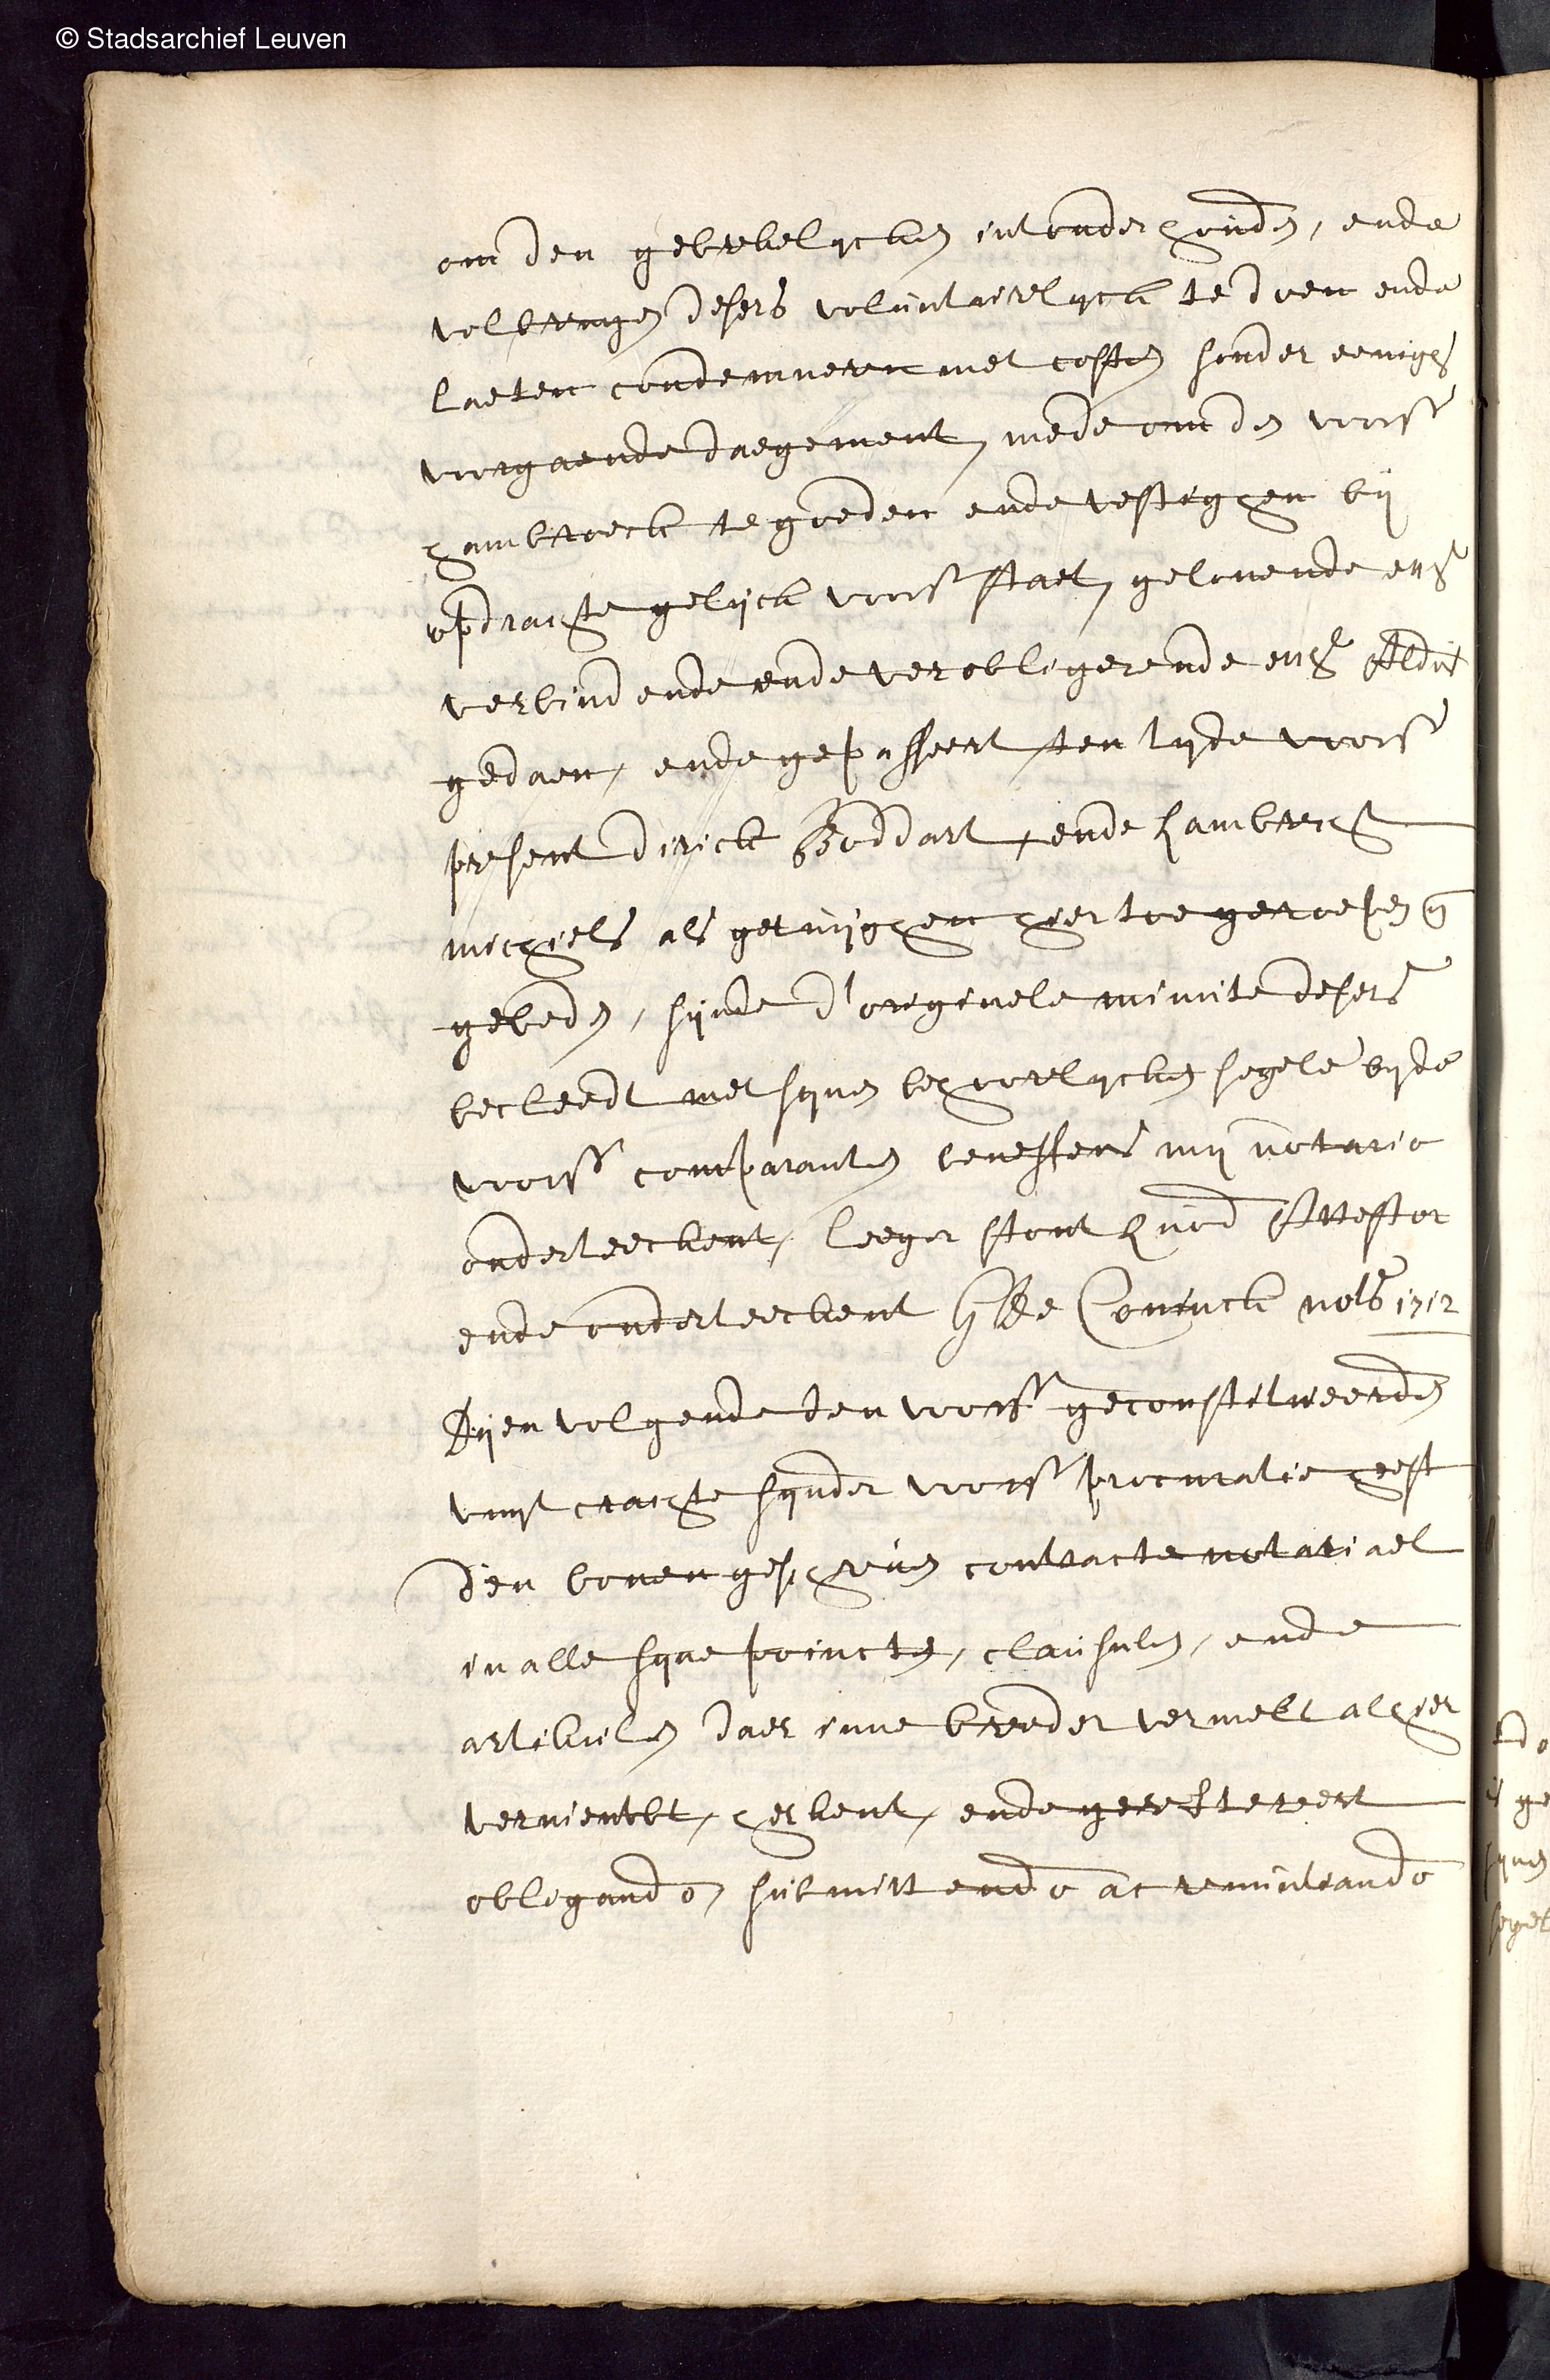 © Stadsarchief Leuven
om den gebrekelycken int onderhouden, ende
volbrengen desers voluntairelyck te doen ende
laeten condemneren met costen sonder eenigh
voorgaende daegement, mede om den voors
hambroeck te goeden ende vestighen bij
opdrachte gelijck voors staet, gelovende etc
verbindende ende verobligerende etc Aldus
gedaen, ende gepasseert ten tyde voors
present dirick Boddart, ende Lambrecht
michiels als getuijghen hier toe geroepen en
gebeden, sijnde d'originele minute desers
becleedt met synen behoorelycken segele byde
voors comparanten beneffens mij notario
onderteeckent, leeger stont Quod Attestor
ende onderteeckent G De Coninck nots 1712
Dijen volgende den voors geconstitueerden
vuyt crachte synder voors procuratie heeft
den boven geschreven contracte notariael
in alle syne poincten, clausulen, ende
artikulen daer inne breeder vermelt alhier
vernieuwt, herkent, ende gereitereert
obligando, submittendo ac renuntiando